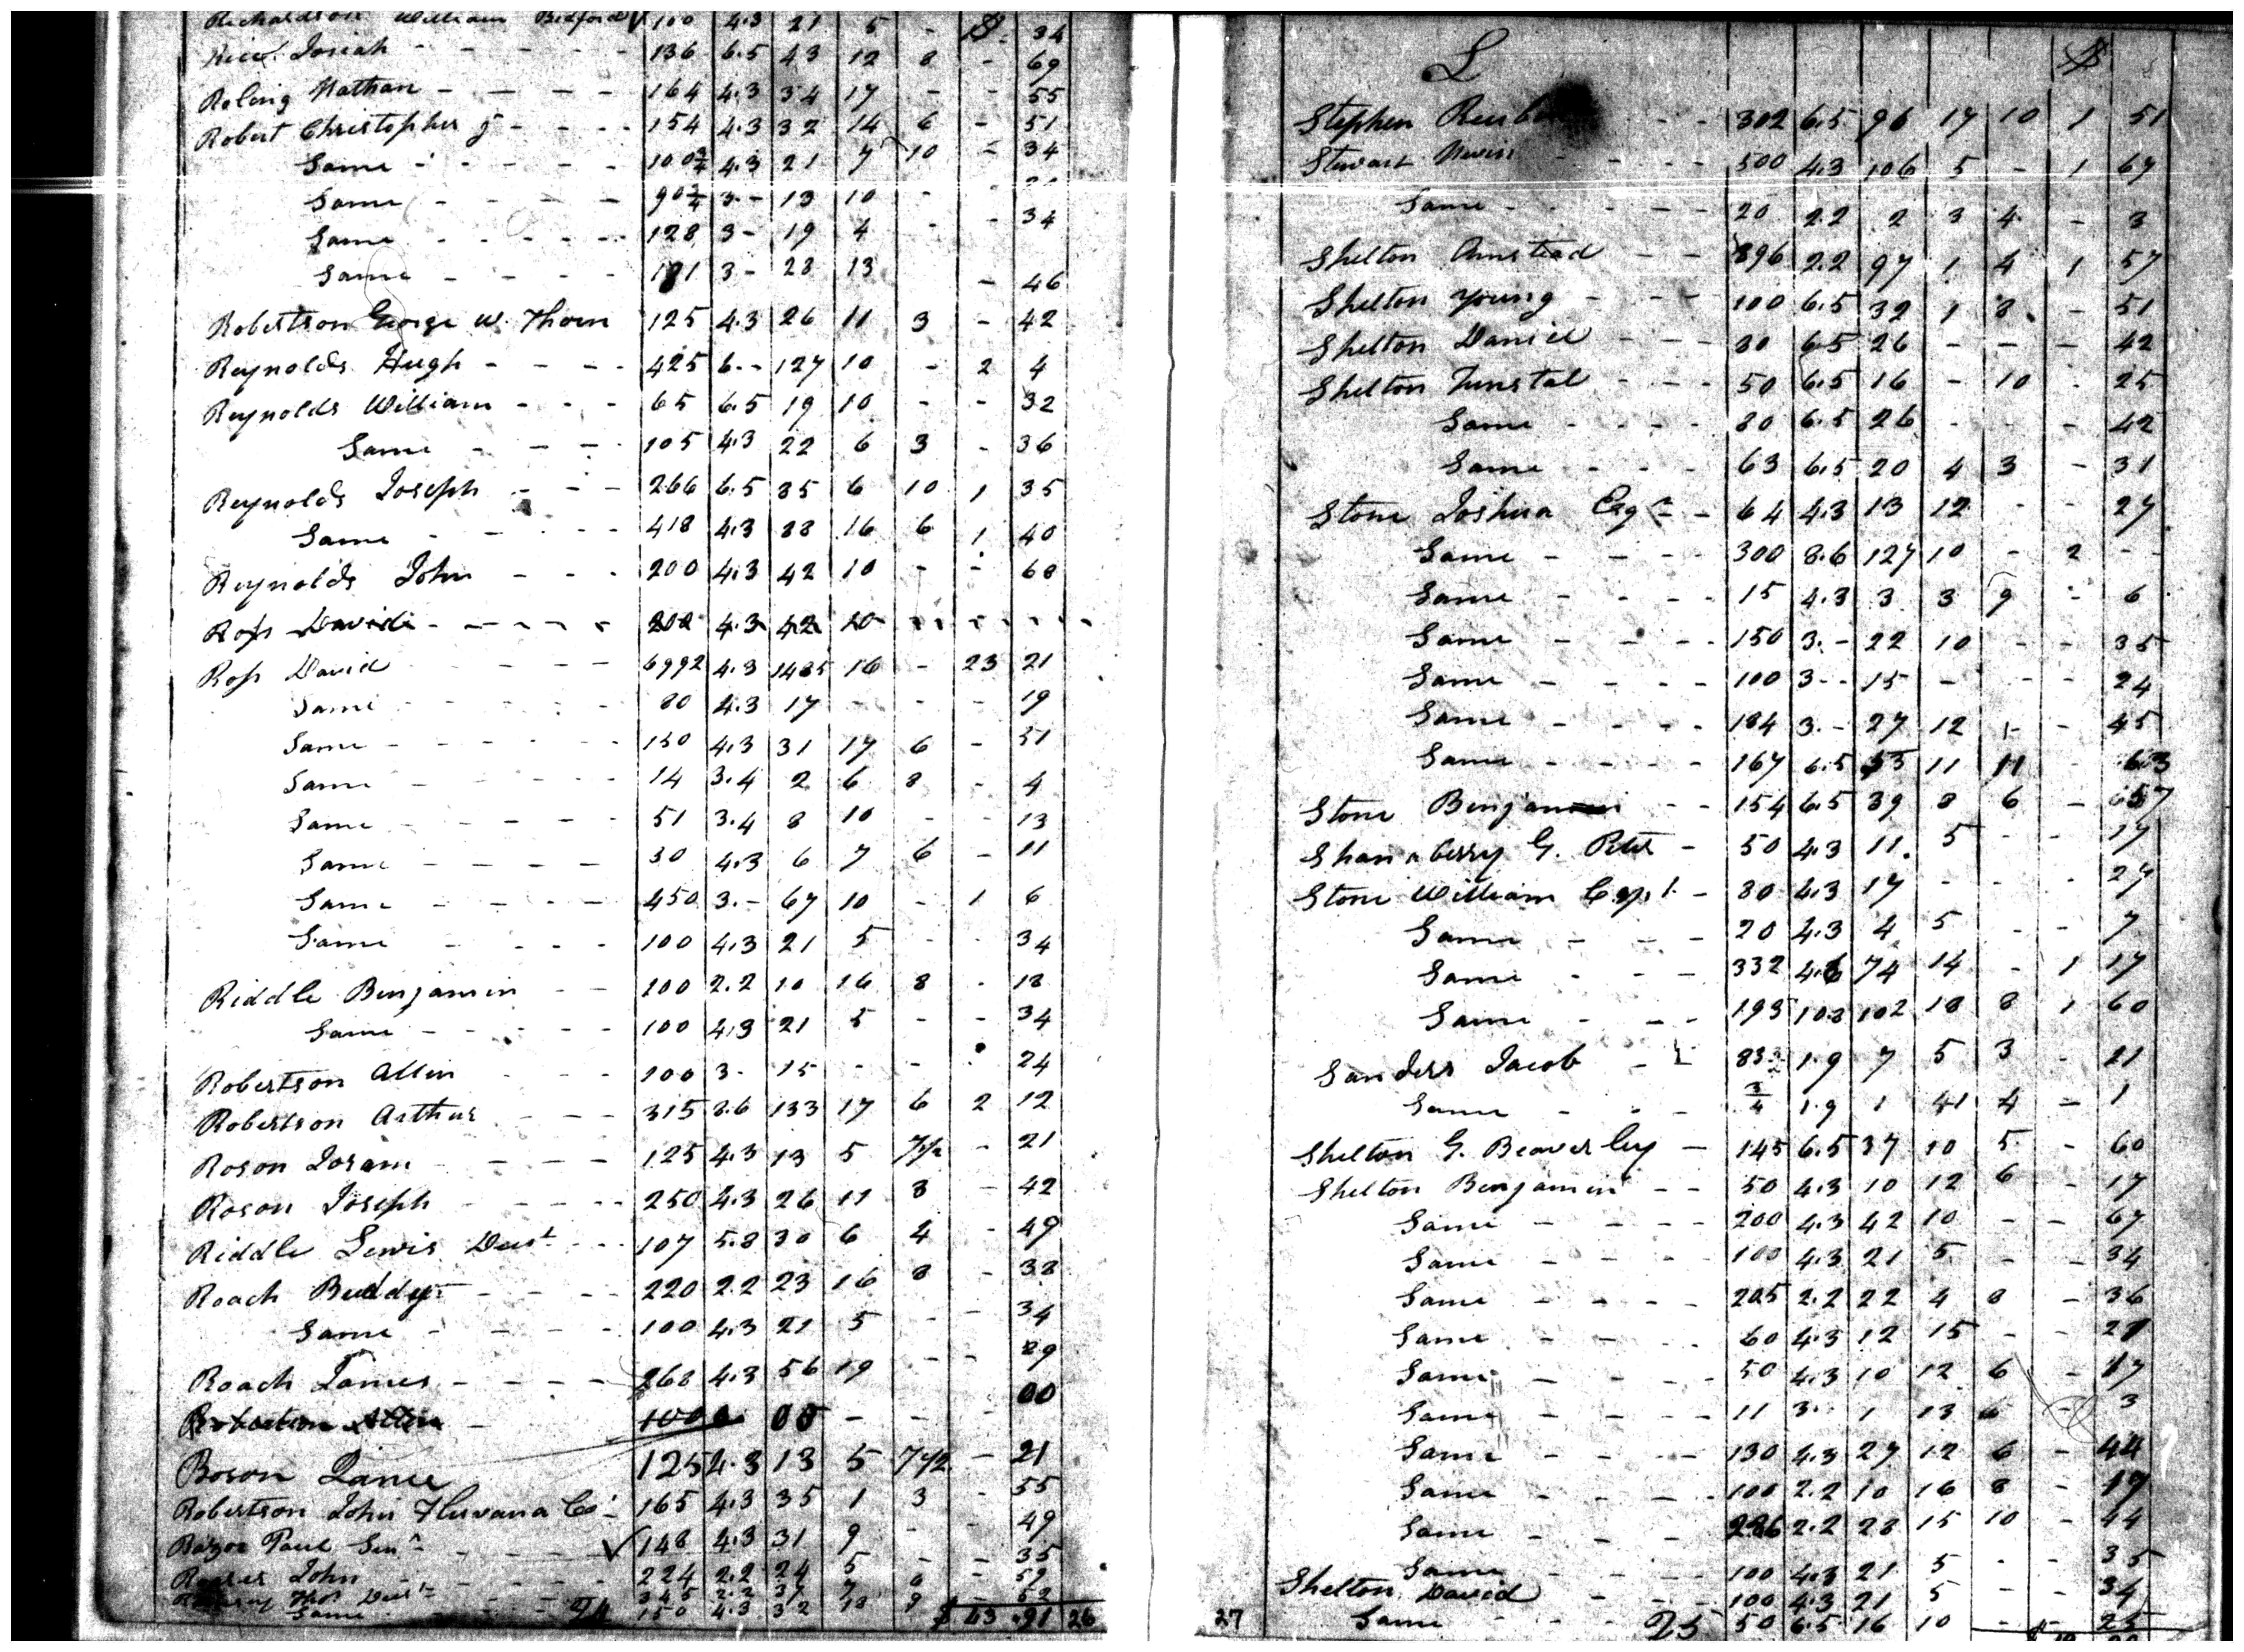 Richardson William Bedford 100 4.3 21 5 - $ - 34
Rice Josiah - - - - - 136 6.5 43 12 8 - 69
Nathan - - - - 164 4.3 34 17 - - 55
Robert Christopher - - - - 154 4.3 32 14 6 - 51
Same - - - - - 100 3/4 4.3 21 7 10 - 34
Same - - - - - 90 3/4 3 - 13 10 -
Same - - - - - 128 3 - 19 4 - - 34
Same - - - - 181 3 - 28 13 - 46
Robertson George W. Thorn 125 4.3 26 11 3 - 42
Reynolds Hugh - - - - 425 6 - - 127 10 - 2 4
Reynolds William - - - 65 6.5 19 10 - - 32
Same - - - 105 4.3 22 6 3 - 36
Reynolds Joseph - - - 266 6.5 85 6 10 1 35
Same - - - - 418 4.3 88 16 6 1 40
Reynolds John - - - 200 4.3 42 10 - - 68
Ross David - - - - - 200 4.3 42 10
Ross David - - - - - 6992 4.3 1485 16 - 23 21
Same - - - - - 80 4.3 17 - - - 19
Same - - - - - - 150 4.3 31 17 6 - 51
Same - - - - - 14 3.4 2 6 8 - 4
Same - - - - - 51 3.4 8 10 - - 13
Same - - - - - 30 4.3 6 7 6 - 11
Same - - - - - 450 3. - 67 10 - 1 6
Same - - - - 100 4.3 21 5 - - 34
Riddle Benjamin - - 100 2.2 10 16 8 - 18
Same - - - - - 100 4.3 21 5 - - 34
Robertson Allen - - - 100 3 - 15 - - 24
Robertson Arthur - - - 315 8.6 133 17 6 2 12
Roson Joram - - - - 125 4.3 13 5 7 1/2 - 21
Roson Joseph - - - - 250 4.3 26 11 3 - 42
Riddle Lewis Dect - - - 107 5.8 30 6 4 - 49
Roach Buddy - - - - 220 2.2 23 16 8 - 38
Same - - - - - 100 4.3 21 5 - - 34
Roach James - - - - 268 4.3 56 19 - - 89
Robertson Allen - 100 00 - - - 00
Roson Lance 125 4.3 13 5 7 1/2 - 21
Robertson John Fluvana Co. - 165 4.3 35 1 3 - 55
Paul Senr - - - - - ✓ 148 4.3 31 9 - - 49
John - - - - - - 224 2.2 24 5 - - 35
Thos Dect - 345 2.2 37 7 6 - 59
Same - - - 24 150 4.3 32 18 9 $ 43 .91 26
L $
Stephen - - 302 6.5 96 17 10 1 51
Stewart - - - - 500 4.3 106 5 - 1 67
Same - - - - - 20 2.2 2 3 4 - 3
Shelton Armstead - - 896 2.2 97 1 4 1 57
Shelton Young - - - 100 6.5 32 1 8 - 51
Shelton Daniel - - - 80 6.5 26 - - - 42
Shelton Tunstal - - - 50 6.5 16 - 10 - 25
Same - - - - 80 6.5 26 - - - 42
Same - - - 63 6.5 20 4 3 - 31
Stone Joshua Esqr - - 64 4.3 13 12 - - 27
Same - - - - 300 8.6 127 10 - 2 - -
Same - - - - 15 4.3 3 3 9 - 6
Same - - - - 150 3. - 22 10 - - 35
Same - - - - 100 3 - - 15 - - - 24
Same - - - - 184 3. - 27 12 - - 45
Same - - - - 167 6.5 53 11 11 - 63
Stone Benjamin - - 154 6.5 39 8 6 - 57
G. Peter - 50 4.3 11. 5 - - 17
Stone William Capt - 80 4.3 17 - - - 27
Same - - - 20 4.3 4 5 - - 7
Same - - - 332 4.6 74 14 - 1 17
Same - - - 195 10.8 102 18 8 1 60
Sanders Jacob - 83 1/2 1.9 7 5 3 - 11
Same - - - 3/4 1.9 1 41 4 - 1
Shelton G. Beaverley - 145 6.5 37 10 5 - 60
Shelton Benjamin - - 50 4.3 10 12 6 - 17
Same - - - - 200 4.3 42 10 - - 67
Same - - - - 100 4.3 21 5 - - 34
Same - - - - 205 2.2 22 4 8 - 36
Same - - - - 60 4.3 12 15 - - 21
Same - - - - 50 4.3 10 12 6 - 17
Same - - - - 11 3 - 1 13 6 - 3
Same - - - - 130 4.3 27 12 6 - 44
Same - - - - 100 2.2 10 16 8 - 19
Same - - - 286 2.2 28 15 10 - 44
Same - - - 100 4.3 21 5 - - 35
Shelton David - 100 4.3 21 5 - - 34
27 Same - - - 25 50 6.5 16 10 - 25